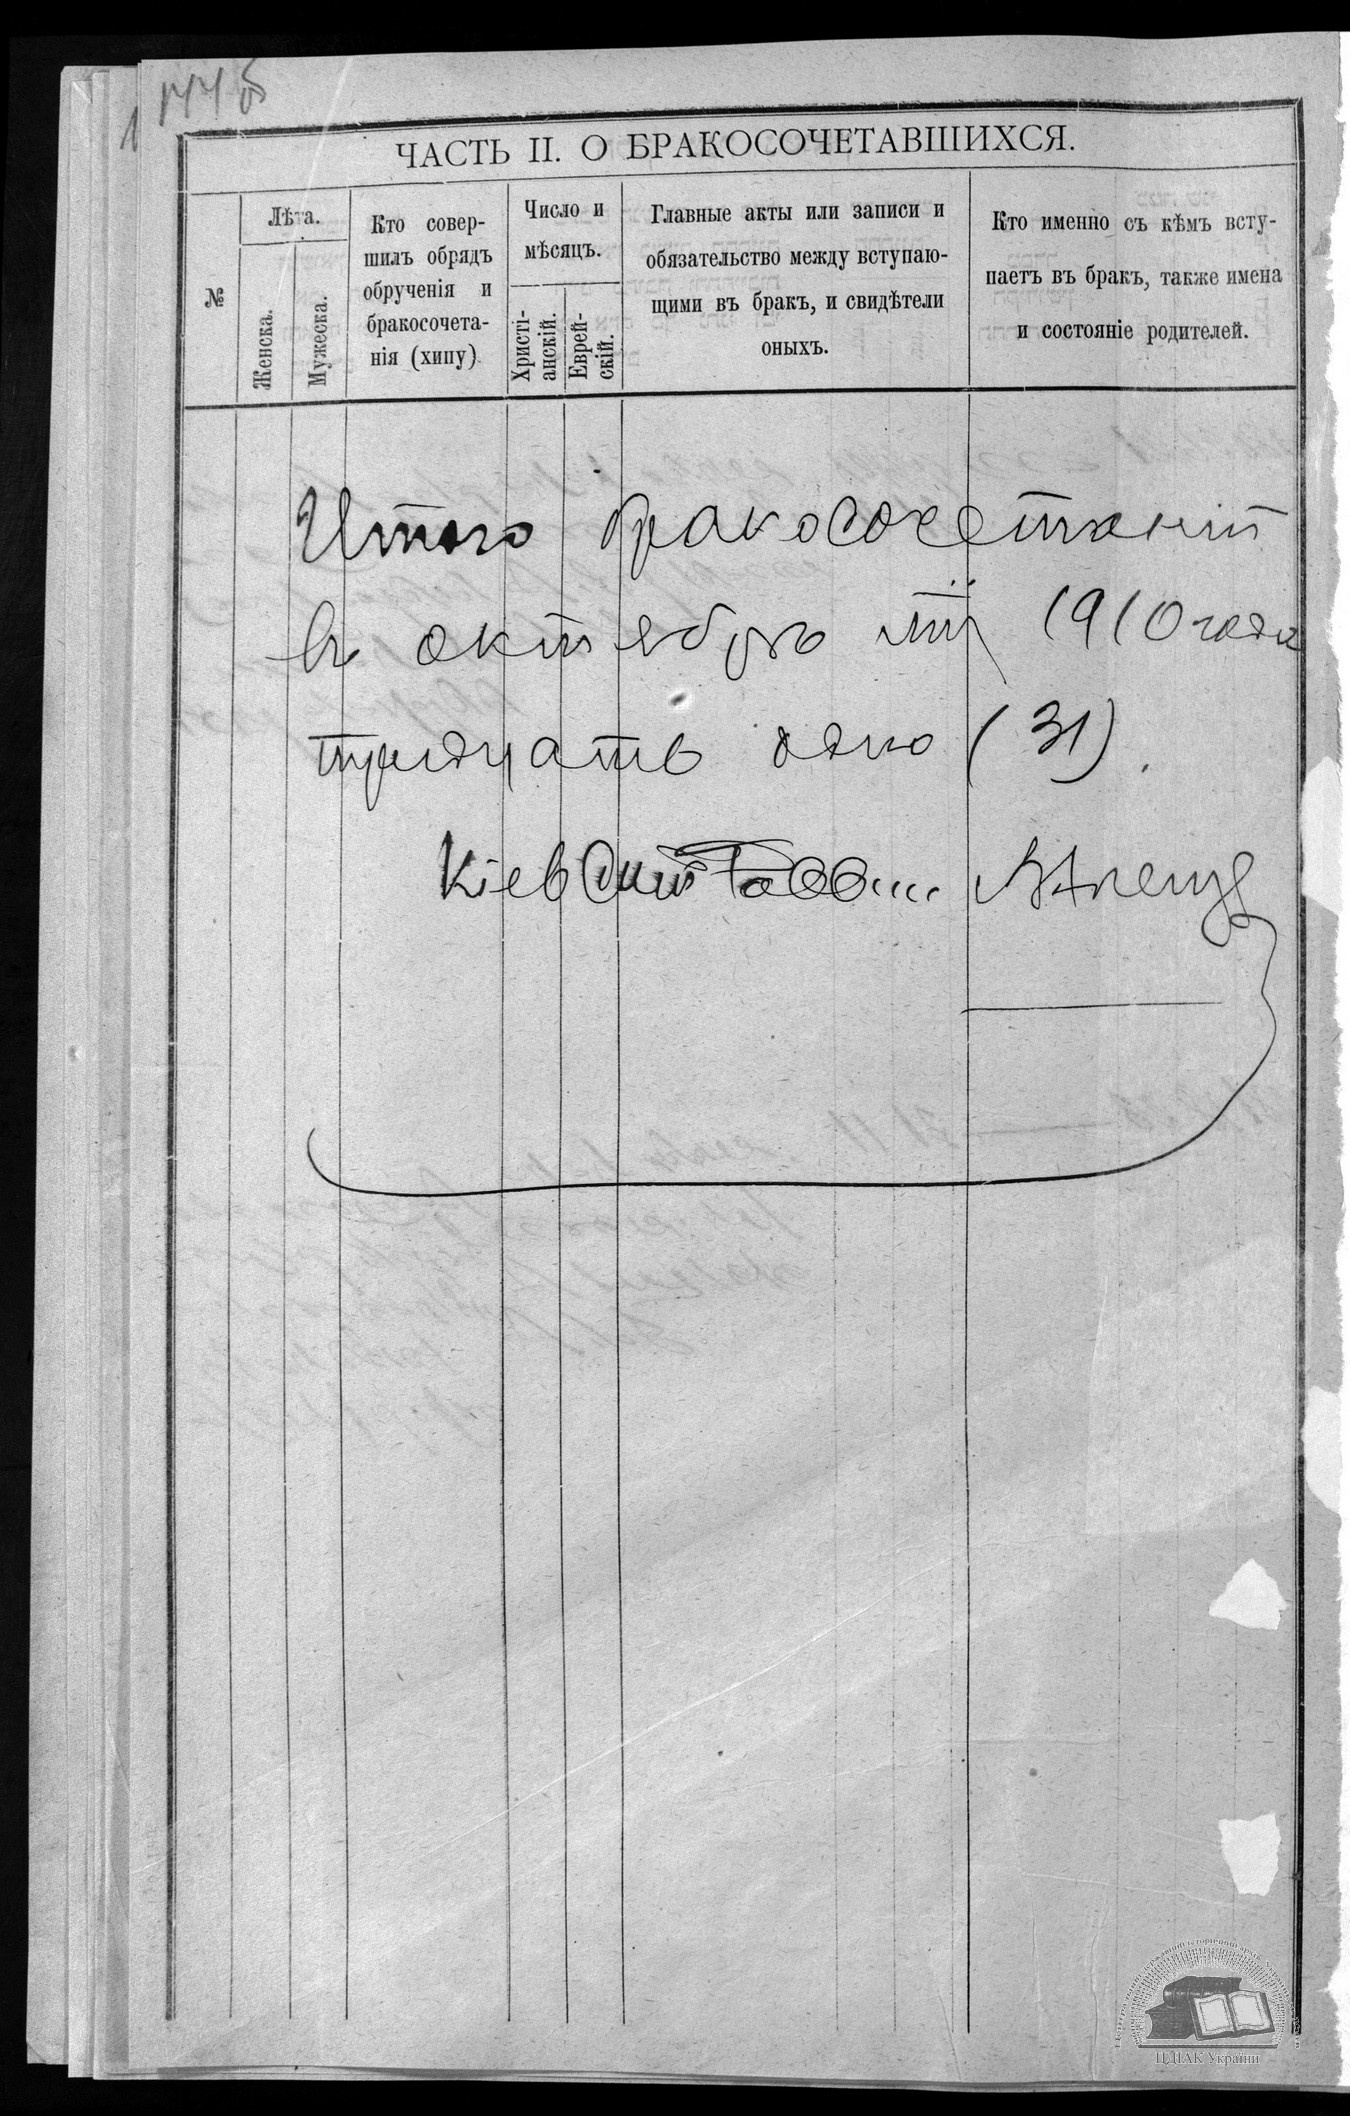 ЧАСТЬ II. О БРАКОСОЧЕТАВШИХСЯ.
№
Лѣта.
Женска.
Мужеска.
Кто совер-
шилъ обрядъ
обрученія и
бракосочета-
нія (хипу)
Число и
мѣсяцъ.
Христі-
анскій.
Еврей-
скій.
Главные акты или записи и
обязательство между вступаю-
щими въ бракъ, и свидѣтели
оныхъ.
Кто именно съ кѣмъ всту-
паетъ въ бракъ, также имена
и состояніе родителей.
Итого бракосочетаній
въ октябрѣ 1910 года
тридцать одно (31).
Кіевскій
ЦДІАК України